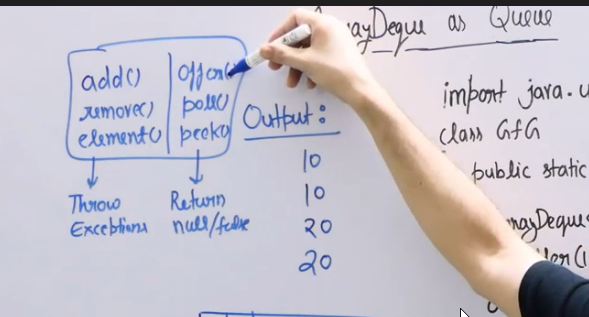 ArrayDeque as Queue
add()
remove()
element()
offer()
poll()
peek()
Throw
Exceptions
Return
null/false
Output:
10
10
20
20
import java.u
class GfG
public static
rrayDeque